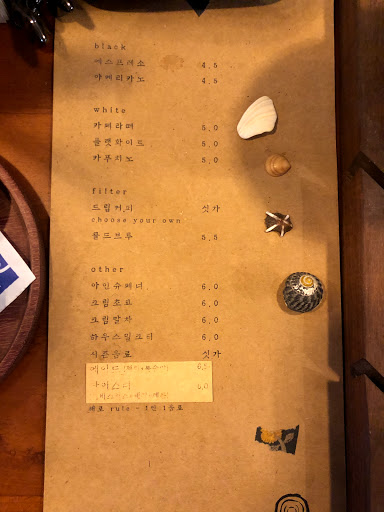 black
에스프레소 4.5
아메리카노 4.5
white
카페라떼 5.0
플랫화이트 5.0
카푸치노 5.0
filter
드립커피 싯가
choose your own
콜드브루 5.5
other
아인슈페너 6.0
크림호지 6.0
크림말차 6.0
하우스밀크티 6.0
시즌음료 싯가
에이드 6.5
6.0
제로 rule - 1인 1음료